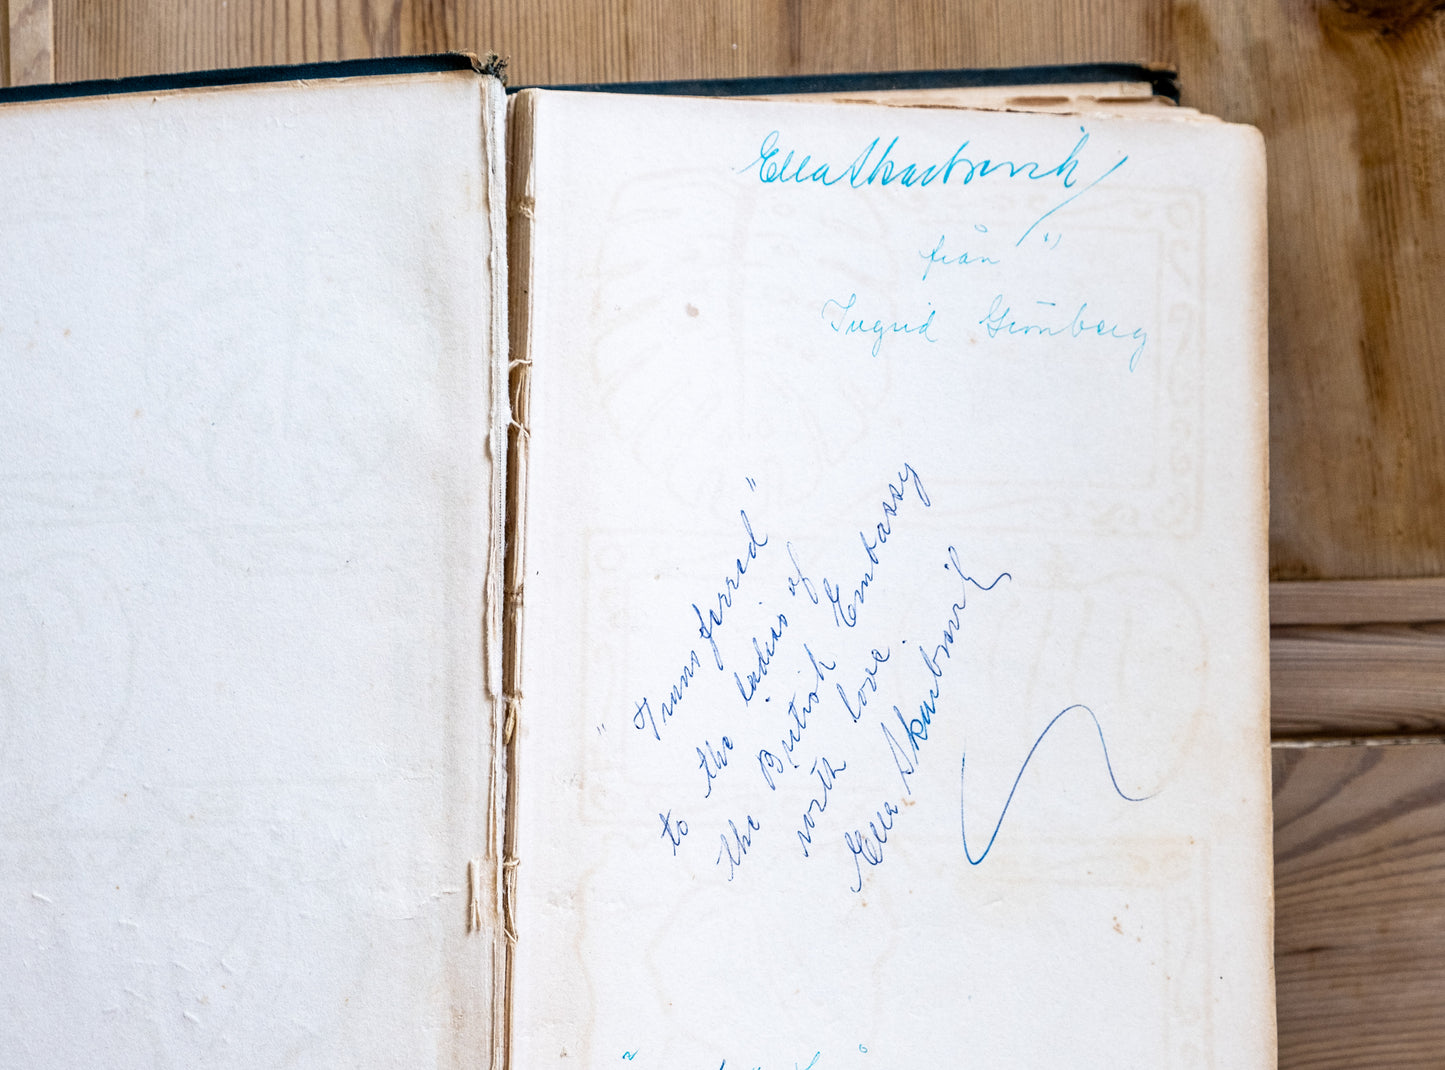 Ella Skarbovik
från
Ingrid Grönberg
"Transferred"
to the ladies of
the British Embassy
with love.
Ella Skarbovik